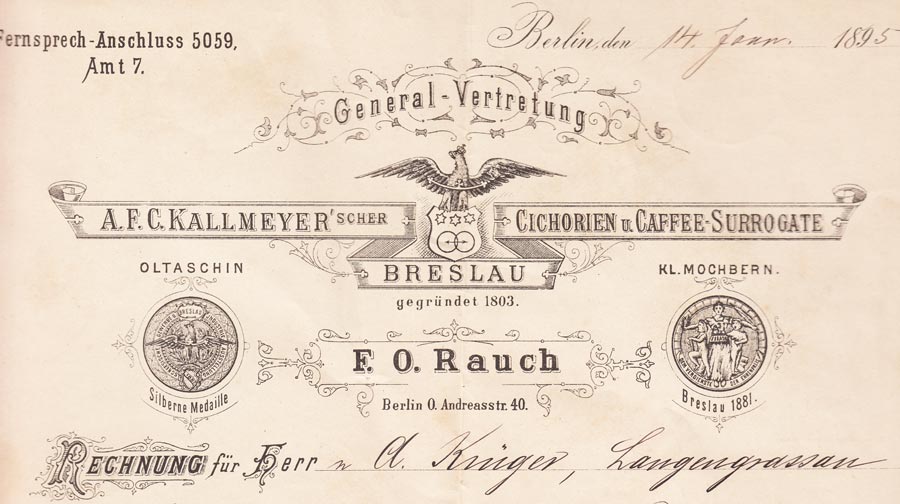 Fernsprech-Anschluss 5059,
Amt 7.
Berlin, den 14. Jan. 1895
General-Vertretung
A.F.C. KALLMEYER'SCHER CICHORIEN u. CAFFEE-SURROGATE
BRESLAU
gegründet 1803.
OLTASCHIN
KL. MOCHBERN.
Silberne Medaille
Breslau 1881.
F. O. Rauch
Berlin O. Andreasstr. 40.
RECHNUNG für Herrn A. Krüger, Langengrassau